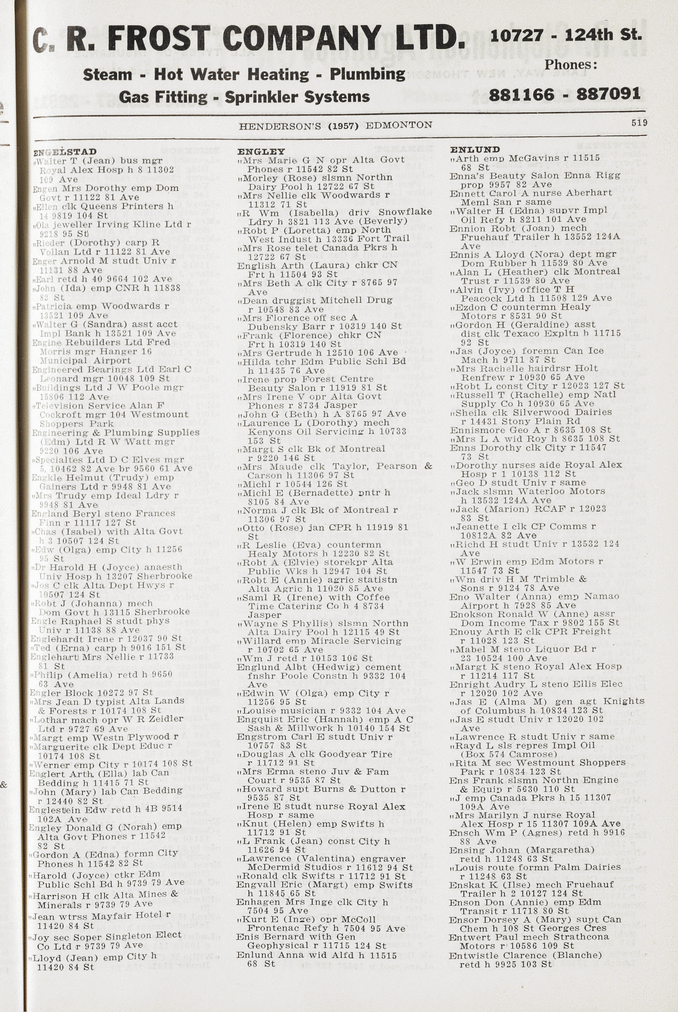 C. R. FROST COMPANY LTD.
10727 - 124th St.
Steam - Hot Water Heating - Plumbing
Gas Fitting - Sprinkler Systems
Phones:
881166 - 887091
HENDERSON'S (1957) EDMONTON
519
ENGELSTAD
"Walter T (Jean) bus mgr
Royal Alex Hosp h 8 11302
109 Ave
Engen Mrs Dorothy emp Dom
Govt r 11122 81 Ave
"Ellen clk Queens Printers h
14 9819 104 St
"Ola jeweller Irving Kline Ltd r
9218 95 St
"Rieder (Dorothy) carp R
Vollan Ltd r 11122 81 Ave
Enger Arnold M studt Univ r
11131 88 Ave
"Earl retd h 40 9664 102 Ave
"John (Ida) emp CNR h 11838
82 St
"Patricia emp Woodwards r
13521 109 Ave
"Walter G (Sandra) asst acct
Impl Bank h 13521 109 Ave
Engine Rebuilders Ltd Fred
Morris mgr Hanger 16
Municipal Airport
Engineered Bearings Ltd Earl C
Leonard mgr 10048 109 St
"Buildings Ltd J W Poole mgr
15806 112 Ave
"Television Service Alan F
Cockroft mgr 104 Westmount
Shoppers Park
Engineering & Plumbing Supplies
(Edm) Ltd R W Watt mgr
9220 106 Ave
"Specialties Ltd D C Elves mgr
5, 10462 82 Ave br 9560 61 Ave
Engke Helmut (Trudy) emp
Gainers Ltd r 9948 81 Ave
"Mrs Trudy emp Ideal Ldry r
9948 81 Ave
England Beryl steno Frances
Finn r 11117 127 St
"Chas (Isabel) with Alta Govt
h 3 10507 124 St
"Edw (Olga) emp City h 11256
95 St
"Dr Harold H (Joyce) anaesth
Univ Hosp h 13207 Sherbrooke
"Jos C clk Alta Dept Hwys r
10507 124 St
"Robt J (Johanna) mech
Dom Govt h 13115 Sherbrooke
Engle Raphael S studt phys
Univ r 11138 88 Ave
Englehardt Irene r 12037 90 St
"Ted (Erna) carp h 9016 151 St
Englehart Mrs Nellie r 11733
81 St
"Philip (Amelia) retd h 9650
63 Ave
Engler Block 10272 97 St
"Mrs Jean D typist Alta Lands
& Forests r 10174 108 St
"Lothar mach opr W R Zeidler
Ltd r 9727 69 Ave
"Margt emp Westn Plywood r
"Marguerite clk Dept Educ r
10174 108 St
"Werner emp City r 10174 108 St
Englert Arth, (Ella) lab Can
Bedding h 11415 71 St
"John (Mary) lab Can Bedding
r 12440 82 St
Englestein Edw retd h 4B 9514
102A Ave
Engley Donald G (Norah) emp
Alta Govt Phones r 11542
82 St
"Gordon A (Edna) formn City
Phones h 11542 82 St
"Harold (Joyce) ctkr Edm
Public Schl Bd h 9739 79 Ave
"Harrison H clk Alta Mines &
Minerals r 9739 79 Ave
"Jean wtrss Mayfair Hotel r
11420 84 St
"Joy sec Soper Singleton Elect
Co Ltd r 9739 79 Ave
"Lloyd (Jean) emp City h
11420 84 St
ENGLEY
"Mrs Marie G N opr Alta Govt
Phones r 11542 82 St
"Morley (Rose) slsmn Northn
Dairy Pool h 12722 67 St
"Mrs Nellie clk Woodwards r
11312 71 St
"R Wm (Isabella) driv Snowflake
Ldry h 3821 113 Ave (Beverly)
"Robt P (Loretta) emp North
West Indust h 13336 Fort Trail
"Mrs Rose telet Canada Pkrs h
12722 67 St
English Arth (Laura) chkr CN
Frt h 11504 93 St
"Mrs Beth A clk City r 8765 97
Ave
"Dean druggist Mitchell Drug
r 10548 83 Ave
"Mrs Florence off sec A
Dubensky Barr r 10319 140 St
"Frank (Florence) chkr CN
Frt h 10319 140 St
"Mrs Gertrude h 12510 106 Ave
"Hilda tchr Edm Public Schl Bd
h 11435 76 Ave
"Irene prop Forest Centre
Beauty Salon r 11919 81 St
"Mrs Irene V opr Alta Govt
Phones r 8734 Jasper
"John G (Beth) h A 8765 97 Ave
"Laurence L (Dorothy) mech
Kenyons Oil Servicing h 10733
153 St
"Margt S clk Bk of Montreal
r 9220 146 St
"Mrs Maude clk Taylor, Pearson &
Carson h 11306 97 St
"Michl r 10544 126 St
"Michl E (Bernadette) pntr h
8105 84 Ave
"Norma J clk Bk of Montreal r
11306 97 St
"Otto (Rose) jan CPR h 11919 81
St
"R Leslie (Eva) countermn
Healy Motors h 12230 82 St
"Robt A (Elvie) storekpr Alta
Public Wks h 12947 104 St
"Robt E (Annie) agric statistn
Alta Agric h 11020 85 Ave
"Saml R (Irene) with Coffee
Time Catering Co h 4 8734
Jasper
"Wayne S Phyllis) slsmn Northn
Alta Dairy Pool h 12115 49 St
"Willard emp Miracle Servicing
r 10702 65 Ave
"Wm J retd r 10153 106 St
Englund Albt (Hedwig) cement
fnshr Poole Constn h 9332 104
Ave
"Edwin W (Olga) emp City r
11256 95 St
"Louise musician r 9332 104 Ave
Engquist Eric (Hannah) emp A C
Sash & Millwork h 10140 154 St
Engstrom Carl E studt Univ r
10757 83 St
"Douglas A clk Goodyear Tire
r 11712 91 St
"Mrs Erma steno Juv & Fam
Court r 9535 87 St
"Howard supt Burns & Dutton r
9535 87 St
"Irene E studt nurse Royal Alex
Hosp r same
"Knut (Helen) emp Swifts h
11712 91 St
"L Frank (Jean) const City h
11626 94 St
"Lawrence (Valentina) engraver
McDermid Studios r 11612 94 St
"Ronald clk Swifts r 11712 91 St
Engvall Eric (Margt) emp Swifts
h 11845 65 St
Enhagen Mrs Inge clk City h
7504 95 Ave
"Kurt E (Inge) opr McColl
Frontenac Refy h 7504 95 Ave
Enis Bernard with Gen
Geophysical r 11715 124 St
Enlund Anna wid Alfd h 11515
68 St
ENLUND
"Arth emp McGavins r 11515
68 St
Enna's Beauty Salon Enna Rigg
prop 9957 82 Ave
Ennett Carol A nurse Aberhart
Meml San r same
"Walter H (Edna) supvr Impl
Oil Refy h 8211 101 Ave
Ennion Robt (Joan) mech
Fruehauf Trailer h 13552 124A
Ave
Ennis A Lloyd (Nora) dept mgr
Dom Rubber h 11539 80 Ave
"Alan L (Heather) clk Montreal
Trust r 11539 80 Ave
"Alvin (Ivy) office T H
Peacock Ltd h 11508 129 Ave
"Ezdon C countermn Healy
Motors r 8531 90 St
"Gordon H (Geraldine) asst
dist clk Texaco Expltn h 11715
92 St
"Jas (Joyce) foremn Can Ice
Mach h 9711 87 St
"Mrs Rachelle hairdrsr Holt
Renfrew r 10930 65 Ave
"Robt L const City r 12023 127 St
"Russell T (Rachelle) emp Natl
Supply Co h 10930 65 Ave
"Sheila clk Silverwood Dairies
r 14431 Stony Plain Rd
Ennismore Geo A r 8635 108 St
"Mrs L A wid Roy h 8635 108 St
Enns Dorothy clk City r 11547
73 St
"Dorothy nurses aide Royal Alex
Hosp r 1 10138 112 St
"Geo D studt Univ r same
"Jack slsmn Waterloo Motors
h 13532 124A Ave
"Jack (Marion) RCAF r 12023
83 St
"Jeanette I clk CP Comms r
10812A 82 Ave
"Richd H studt Univ r 13532 124
Ave
"W Erwin emp Edm Motors r
11547 73 St
"Wm driv H M Trimble &
Sons r 9124 78 Ave
Eno Walter (Anna) emp Namao
Airport h 7928 85 Ave
Enokson Ronald W (Anne) assr
Dom Income Tax r 9802 155 St
Enouy Arth E clk CPR Freight
r 11028 123 St
"Mabel M steno Liquor Bd r
23 10524 100 Ave
"Margt K steno Royal Alex Hosp
r 11214 117 St
Enright Audry L steno Ellis Elec
r 12020 102 Ave
"Jas E (Alma M) gen agt Knights
of Columbus h 10834 123 St
"Jas E studt Univ r 12020 102
Ave
"Lawrence R studt Univ r same
"Rayd L sls repres Impl Oil
(Box 574 Camrose)
"Rita M sec Westmount Shoppers
Park r 10834 123 St
Ens Frank slsmn Northn Engine
& Equip r 5630 110 St
"J emp Canada Pkrs h 15 11307
109A Ave
"Mrs Marilyn J nurse Royal
Alex Hosp r 15 11307 109A Ave
Ensch Wm P (Agnes) retd h 9916
88 Ave
Ensing Johan (Margaretha)
retd h 11248 63 St
"Louis route formn Palm Dairies
r 11248 63 St
Enskat K (Ilse) mech Fruehauf
Trailer h 2 10127 124 St
Enson Don (Annie) emp Edm
Transit r 11718 80 St
Ensor Dorsey A (Mary) supt Can
Chem h 108 St Georges Cres
Entwert Paul mech Strathcona
Motors r 10586 109 St
Entwistle Clarence (Blanche)
retd h 9925 103 St
&